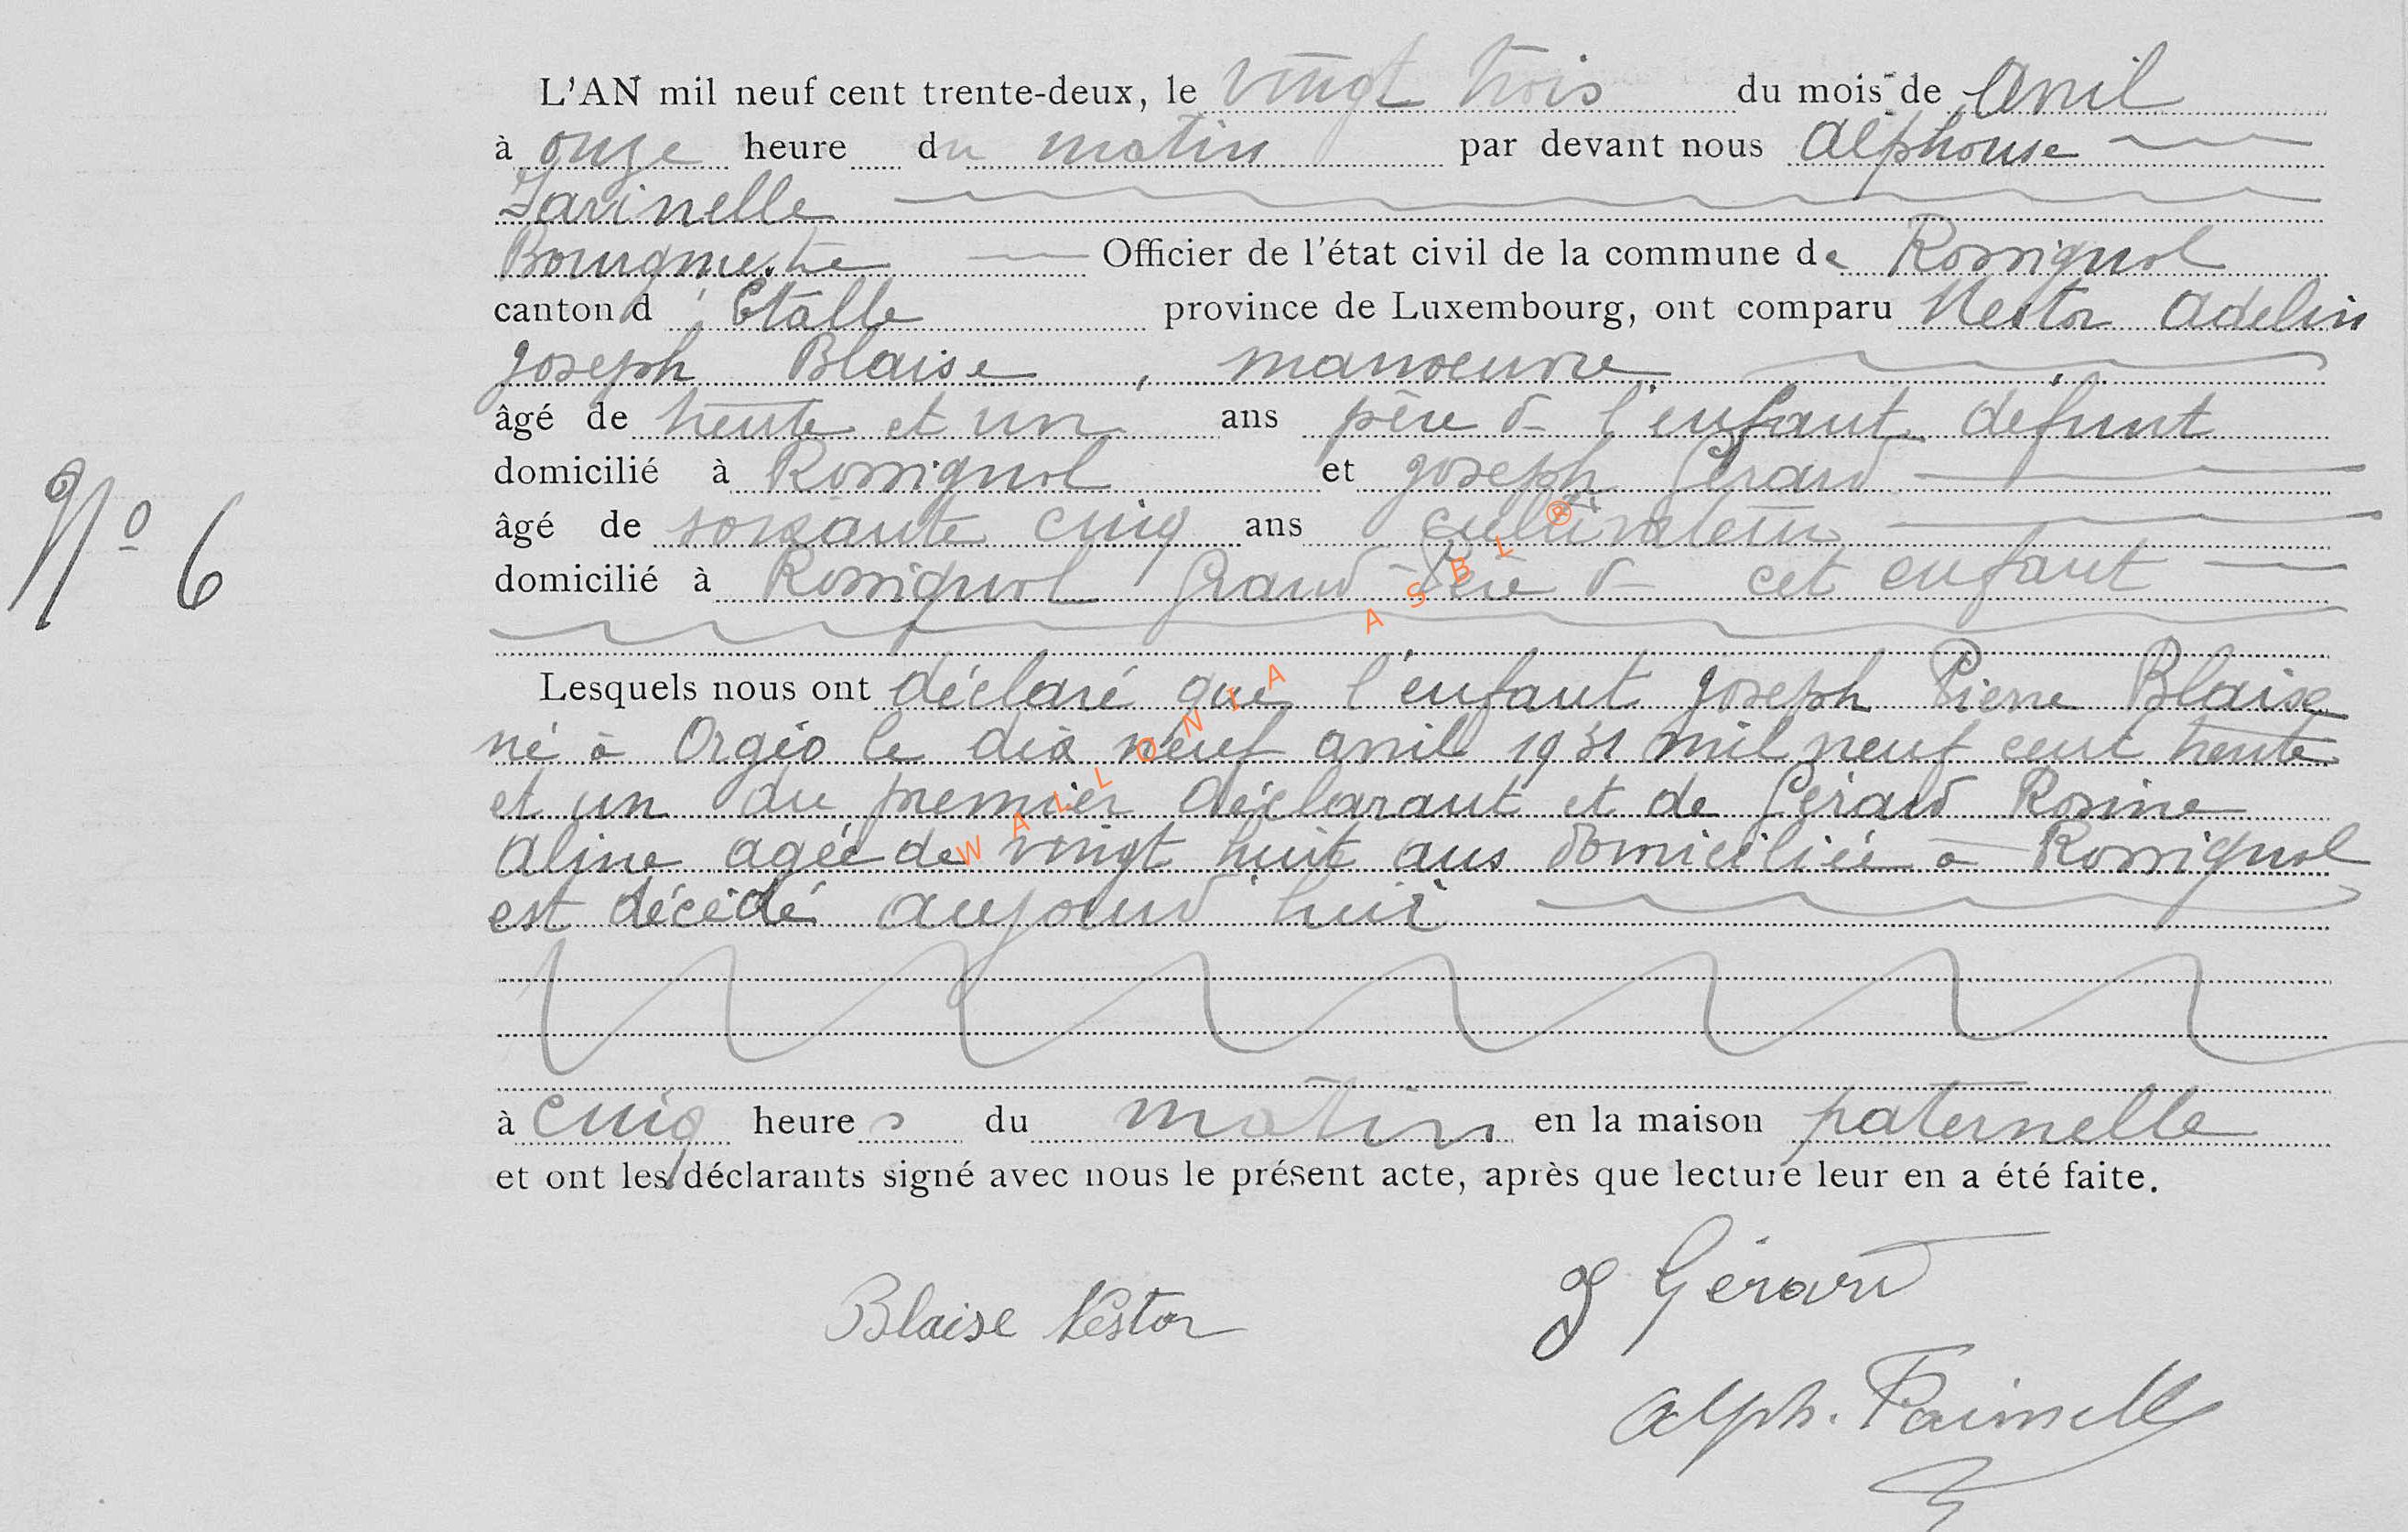 L'AN mil neuf cent trente-deux, le vingt trois du mois de Avril
à onze heure du matin par devant nous Alphonse
Farinelle
Bourgmestre Officier de l'état civil de la commune de Rossignol
canton d'Etalle province de Luxembourg, ont comparu Nestor Adelin
Joseph Blaise, manoeuvre
âgé de trente et un ans père de l'enfant défunt
domicilié à Rossignol et Joseph Gérard
N° 6
âgé de soixante cinq ans cultivateur
domicilié à Rossignol Grand-Père de cet enfant
Lesquels nous ont déclaré que l'enfant Joseph Pierre Blaise
né à Orgéo le dix neuf avril 1931 mil neuf cent trente
et un du premier déclarant et de Gérard Rosine
Aline agée de vingt huit ans domiciliée à Rossignol
est décédé aujourd'hui
à cinq heures du matin en la maison paternelle
et ont les déclarants signé avec nous le présent acte, après que lecture leur en a été faite.
Blaise Nestor
J Gérard
Alph. Farinelle
WALLONIA ASBL ®